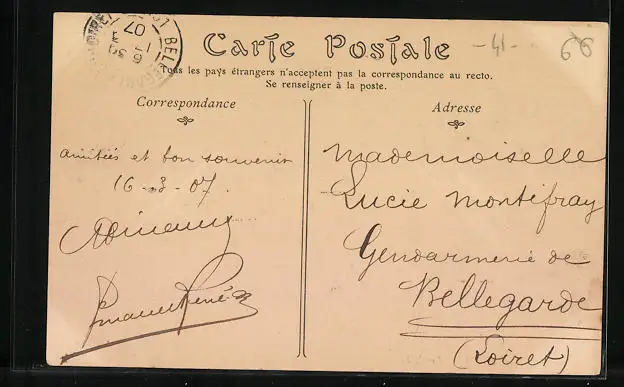 Carte Postale
Tous les pays étrangers n'acceptent pas la correspondance au recto.
Se renseigner à la poste.
Correspondance
Adresse
-41-
66
BELLEGARDE
07
amitiés et bon souvenir
16-3-07.
René
Mademoiselle
Lucie Montifray
Gendarmerie de
Bellegarde
(Loiret)